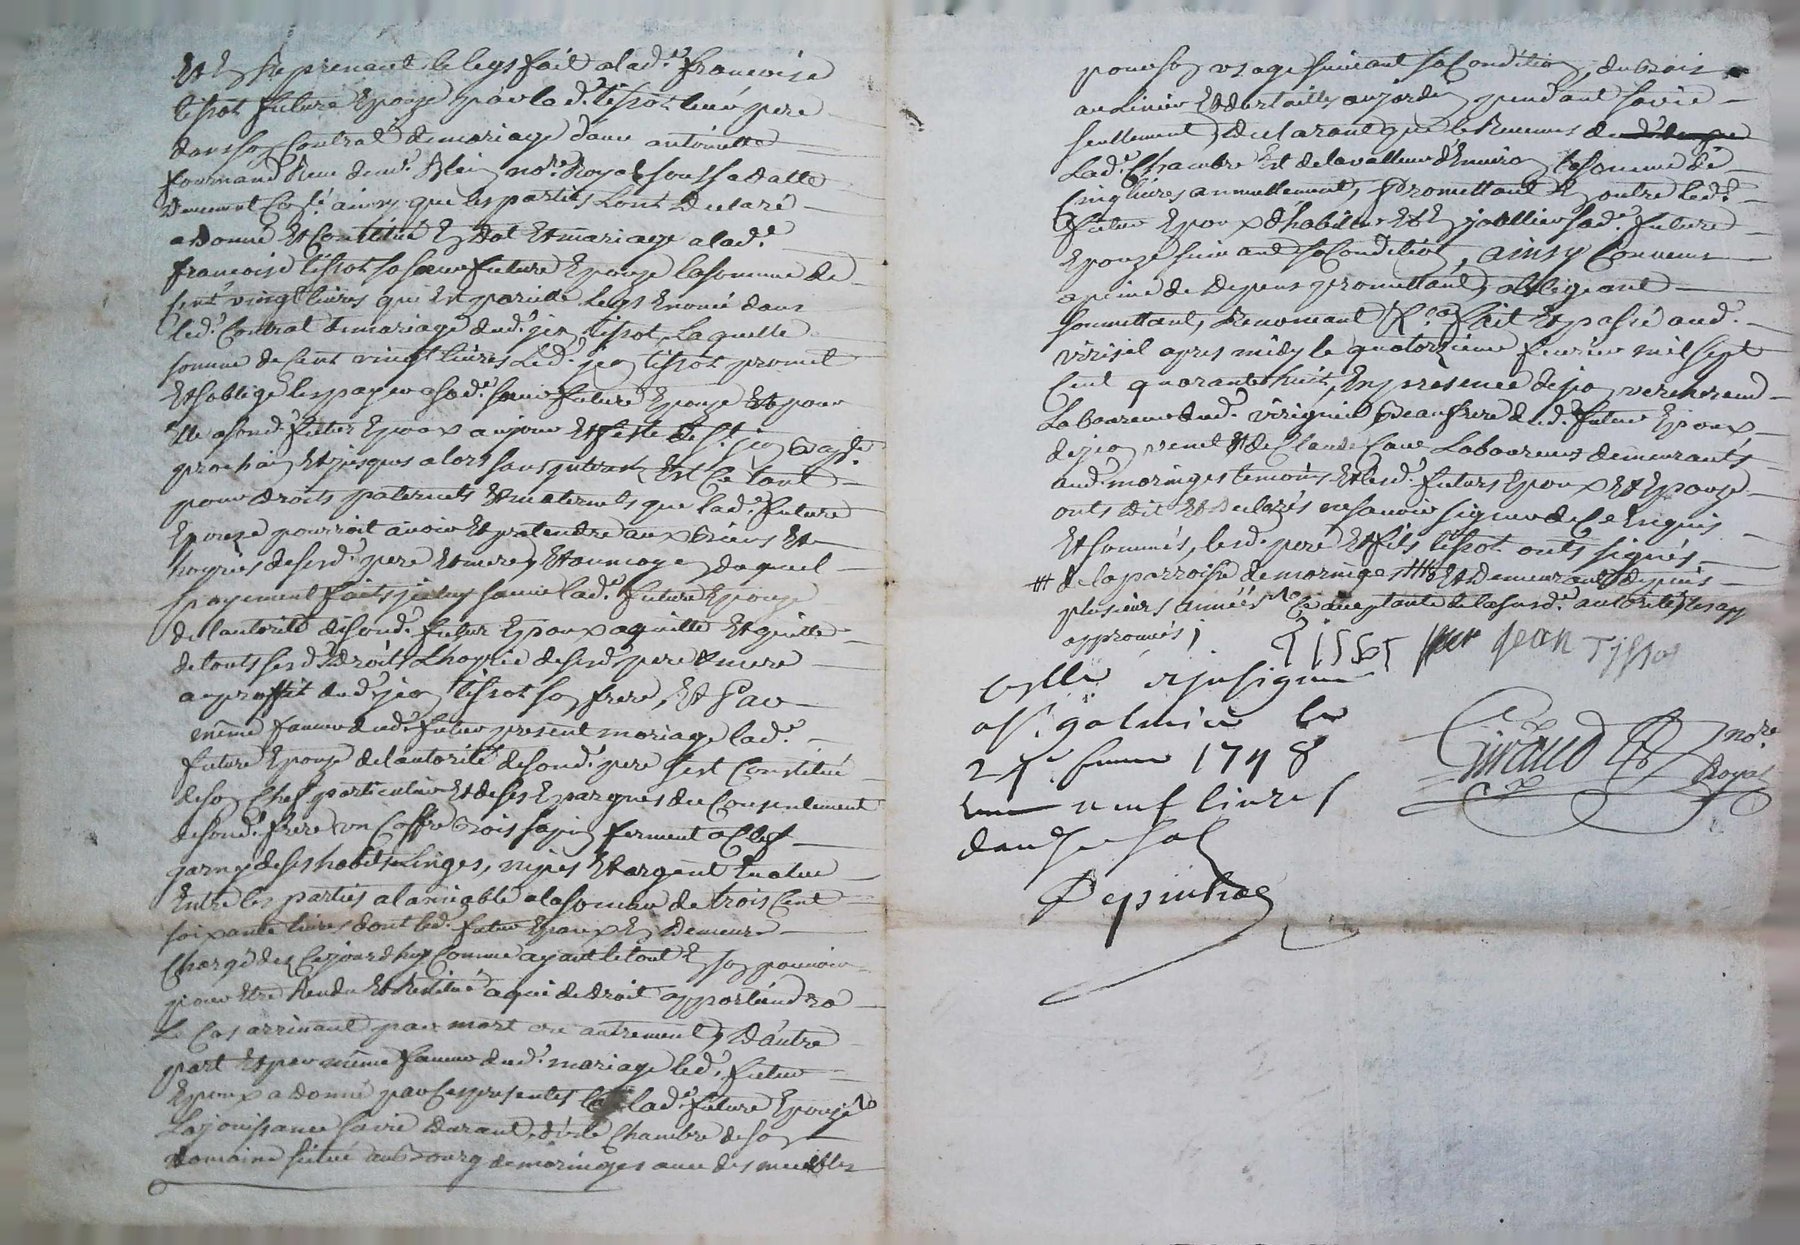 Et en reprenant le legs fait a lad.e francoise
tissot future Epouze par led. tissot leur pere
dans son Contrad de mariage d'avec antoinette
fournand Receu de me. Blein no.re Royal soub sa datte
Deument Con.lé ainsy que les parties L'ont Declaré
a Donné Et Constitué En Dot Et mariage a lad.e
francoise tissot sa sœur future Epouze la somme de
sent vingt livres qui Est pareille Legs Enoncé dans
led. Contrat de mariage dud. jean tissot, Laquelle
somme de Cent vingt livres Led. jean tissot promet
Et s'oblige les payer a sad.e sœur future Epouze Et pour
Elle a sond. futur Epoux au jour Et feste de St. jean Bapt.e
prochain Et jusques alors sans interest Et Ce tant
pour droits paternels Et maternels que lad.e future
Epouze pourroit avoir Et pretendre aux biens Et
hoyries desesd. pere Et mere, Et au moyen duquel
payement fait jcelluy sauve lad.e future Epouze
de l'autorité de sond. futur Epoux a quitté Et quitte
de touts sesd. Droits L'hoyrie desesd. pere & mere
au proffit dud. jean tissot son frere, Et Par
même faveur dud. futur present mariage lad.e
future Epouze de l'autorité de sond. pere s'est Constitué
de son Chef particulier Et de ses Epargnes du Consentement
de sond. frere un Coffre bois sapin fermant a Clef
garny de ses habits, Linges, nipes Et argent Evalué
Entre les parties a l'amiable a la somme de trois Cent
soixante livres dont led. futur Epoux En Demeure
Chargé des Cejourdhuy Comme ayant le tout En son pouvoir
pour Etre Rendu Et Restitué a qui de droit appartiendra
Le Cas arrivant par mort ou autrement, D'autre
part Et par même faveur dud. mariage led. futur
Epoux a Donné par Ces presentes a lad.e future Epouze
La jouissance sa vie Durant, d'une Chambre de son
domaine situé au Bourg de moringes avec des meubles
pour son usage suivant sa Condition, du bois
au Et des au jardin pendant sa vie
seullement, Declarant que le Revenus de
Lad.e Chambre Est de la valleur d'Environ la somme de
Cinq livres annuellement, Promettant En outre led.
futur Epoux d'habiller Et En joallier sad.e future
Epouze suivant sa Condition, ainsy Convenu
a peine de Depens promettant, obligeant
soumettant, Renoncant &ca fait Et passé aud.
virisel apres midy le quatorzieme fevrier mil sept
Cent quarante huit, En presence de jean
Laboureur dud. Beaufrere dud. futur Epoux
de jean Et de Claude Laboureurs demeurants
aud. moringes temoins Et lesd. futurs Epoux Et Epouze
onts dit Et Declarés ne savoir signer de Ce Enquis
Et sommés, lesd. pere Et fils tissot onts signés
# de la parroisse de moringes # Et Demeurant depuis
plusieurs années Ce acceptante de la susd.e autorité
approuvés /
Tissot jean Tissot
Collé et insinué
a St galmier le
fevrier 1748
neuf livres
Giraud no.re
Royal